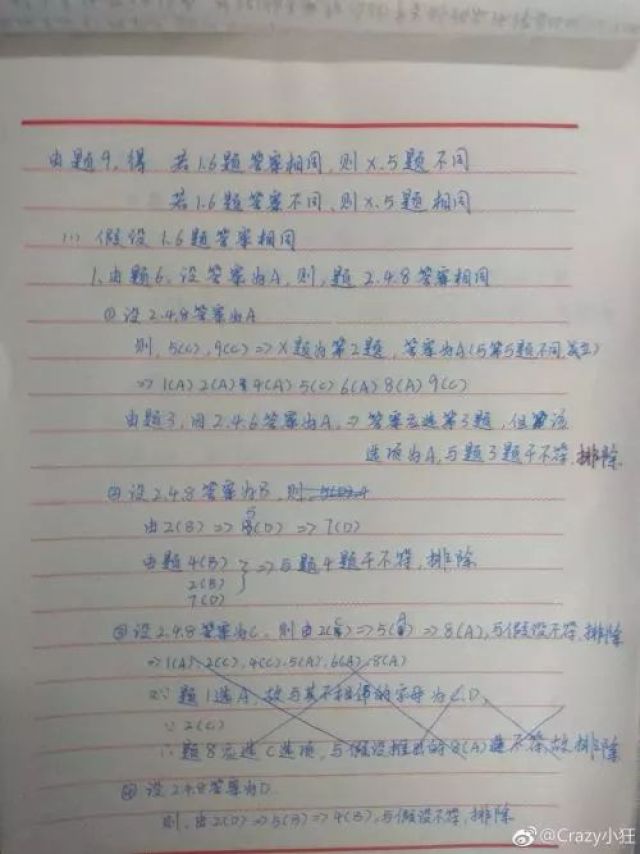 由题9,得 若1.6题答案相同,则X.5题不同
若1.6题答案不同,则X.5题相同
(1) 假设1.6题答案相同
1.由题6,设答案为A,则,题2.4.8答案相同
①设2.4.8答案为A
则,5(C),9(C)=>X题为第2题,答案为A(与第5题不同,成立)
=>1(A)2(A)4(A)5(C)6(A)8(A)9(C)
由题3,因2.4.6答案为A,=>答案应选第3题,但该
选项为A,与题3题干不符,排除
②设2.4.8答案为B,则
由2(B)=>5(D)=>7(D)
由题4(B)
2(B)
7(D)
}=>与题4题干不符,排除
③设2.4.8答案为C,则由2(C)=>5(A)=>8(A),与假设不符,排除
=>1(A).2(C),4(C).5(A),6(A).8(A)
∵题1选A,故与其不相邻的字母为C.D,
∵2(C)
∴题8应选C选项,与假设推出的8(A)不符,故排除
④设2.4.8答案为D
则,由2(D)=>5(B)=>4(B),与假设不符,排除
@Crazy小狂